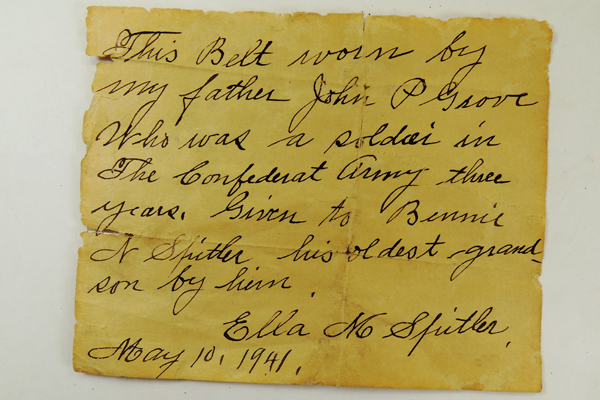 This Belt worn by
my father John P Grove
Who was a soldier in
The Confederat Army three
years. Given to Bennie
N Spitler his oldest grand
son by him.
Ella M Spitler.
May 10, 1941.